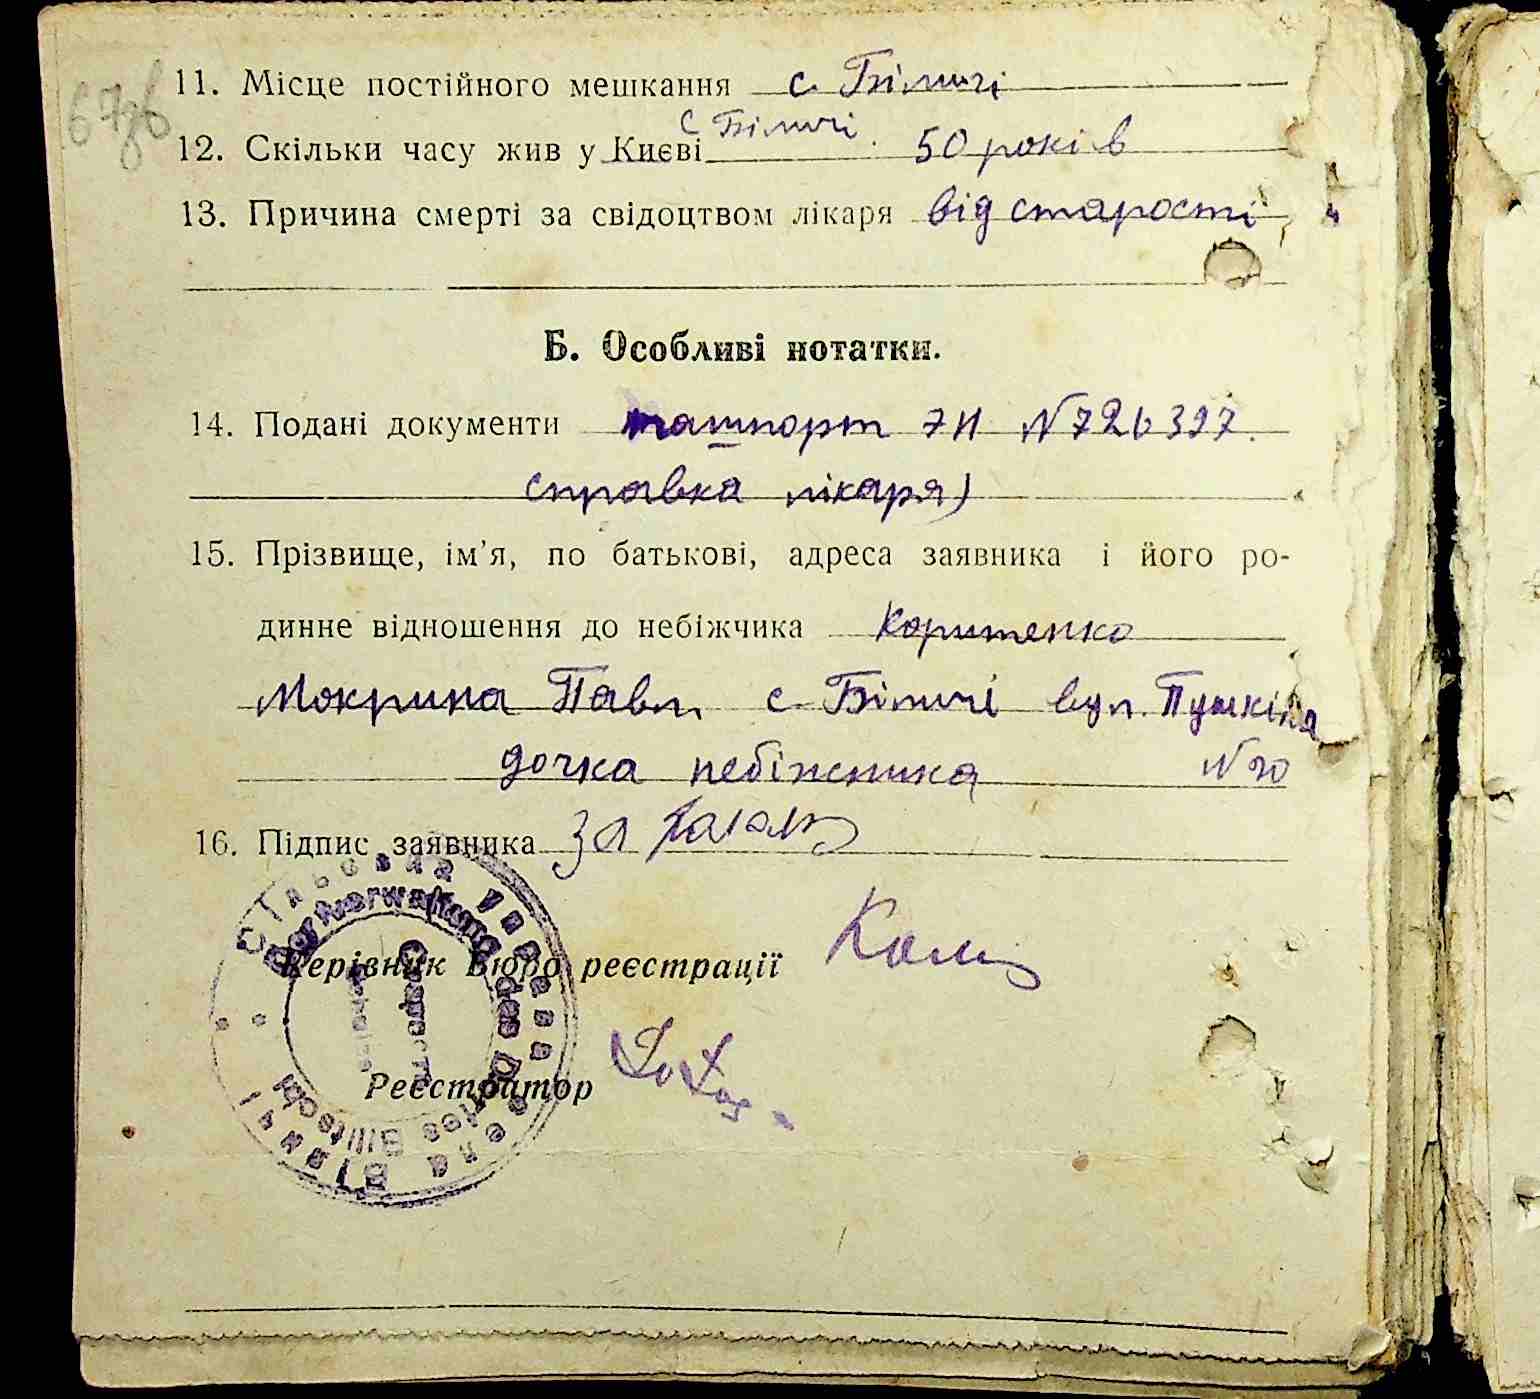 11. Місце постійного мешкання с. Біличі
с Біличі
12. Скільки часу жив у Києві 50 років
13. Причина смерті за свідоцтвом лікаря від старости
Б. Особливі нотатки.
14. Подані документи пашпорт №
справка лікаря)
15. Прізвище, ім'я, по батькові, адреса заявника і його ро-
динне відношення до небіжчика Коритенко
Мокрина Павл. с. Біличі вул. Пушкіна
дочка небіжчика
16. Підпис заявника За
Керівник Бюро реєстрації
Реєстратор